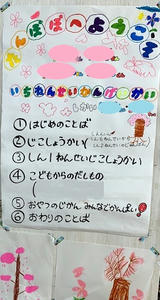 たんぽぽへようこそ
いちねんせいかんげいかい
①はじめのことば
②じこしょうかい
③しん1ねんせいじこしょうかい
④こどもからのだしもの
⑤おやつのじかん みんなでかんぱい
⑥おわりのことば